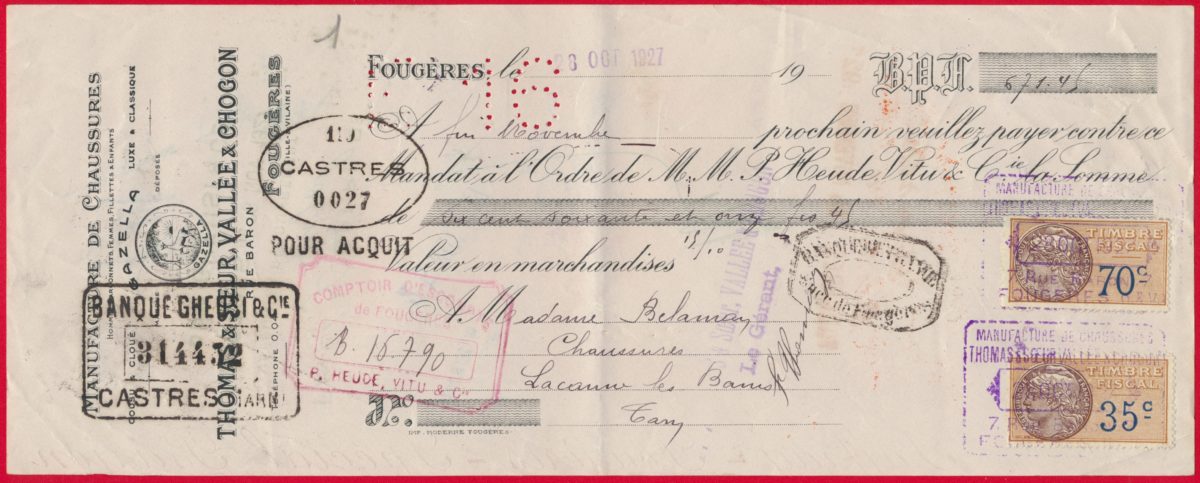 1
MANUFACTURE DE CHAUSSURES
HOMMES, GARÇONNETS, FEMMES, FILLETTES & ENFANTS
GAZELLA LUXE & CLASSIQUE
DÉPOSÉE
GAZELLA
COUSU CLOUÉ
THOMAS & SŒUR, VALLÉE & CHOGON
RUE BARON
FOUGÈRES
(ILLE-&-VILAINE)
TÉLÉPHONE 0.
FOUGÈRES, le 28 OCT 1927 19
B.P.F. 671.45
16
A fin Novembre prochain veuillez payer contre ce
Mandat, à l'Ordre de M.M. P. Heude, Vitu & Cie la Somme
de six cent soixante et onze frs 45
Valeur en marchandises 15/10
A Madame Belamay
Chaussures
Lacaune les Bains
Tarn
No
IMP. MODERNE FOUGÈRES
110
CASTRES
0027
POUR ACQUIT
BANQUE GHE & Cie
314432
CASTRES (TARN)
COMPTOIR D'ES
de FOUGÈRES
B. 16.790
P. HEUDE, VITU & Cie
SŒUR, VALLÉE
Le Gérant,
BANQUE DE FRANCE
Fougères
MANUFACTURE DE CHAUSSURES
THOMAS SŒUR
RUE
FOUGÈRES
TIMBRE
FISCAL
70c
MANUFACTURE DE CHAUSSURES
THOMAS SŒUR VALLÉE CHOGON
7, R
TIMBRE
FISCAL
35c